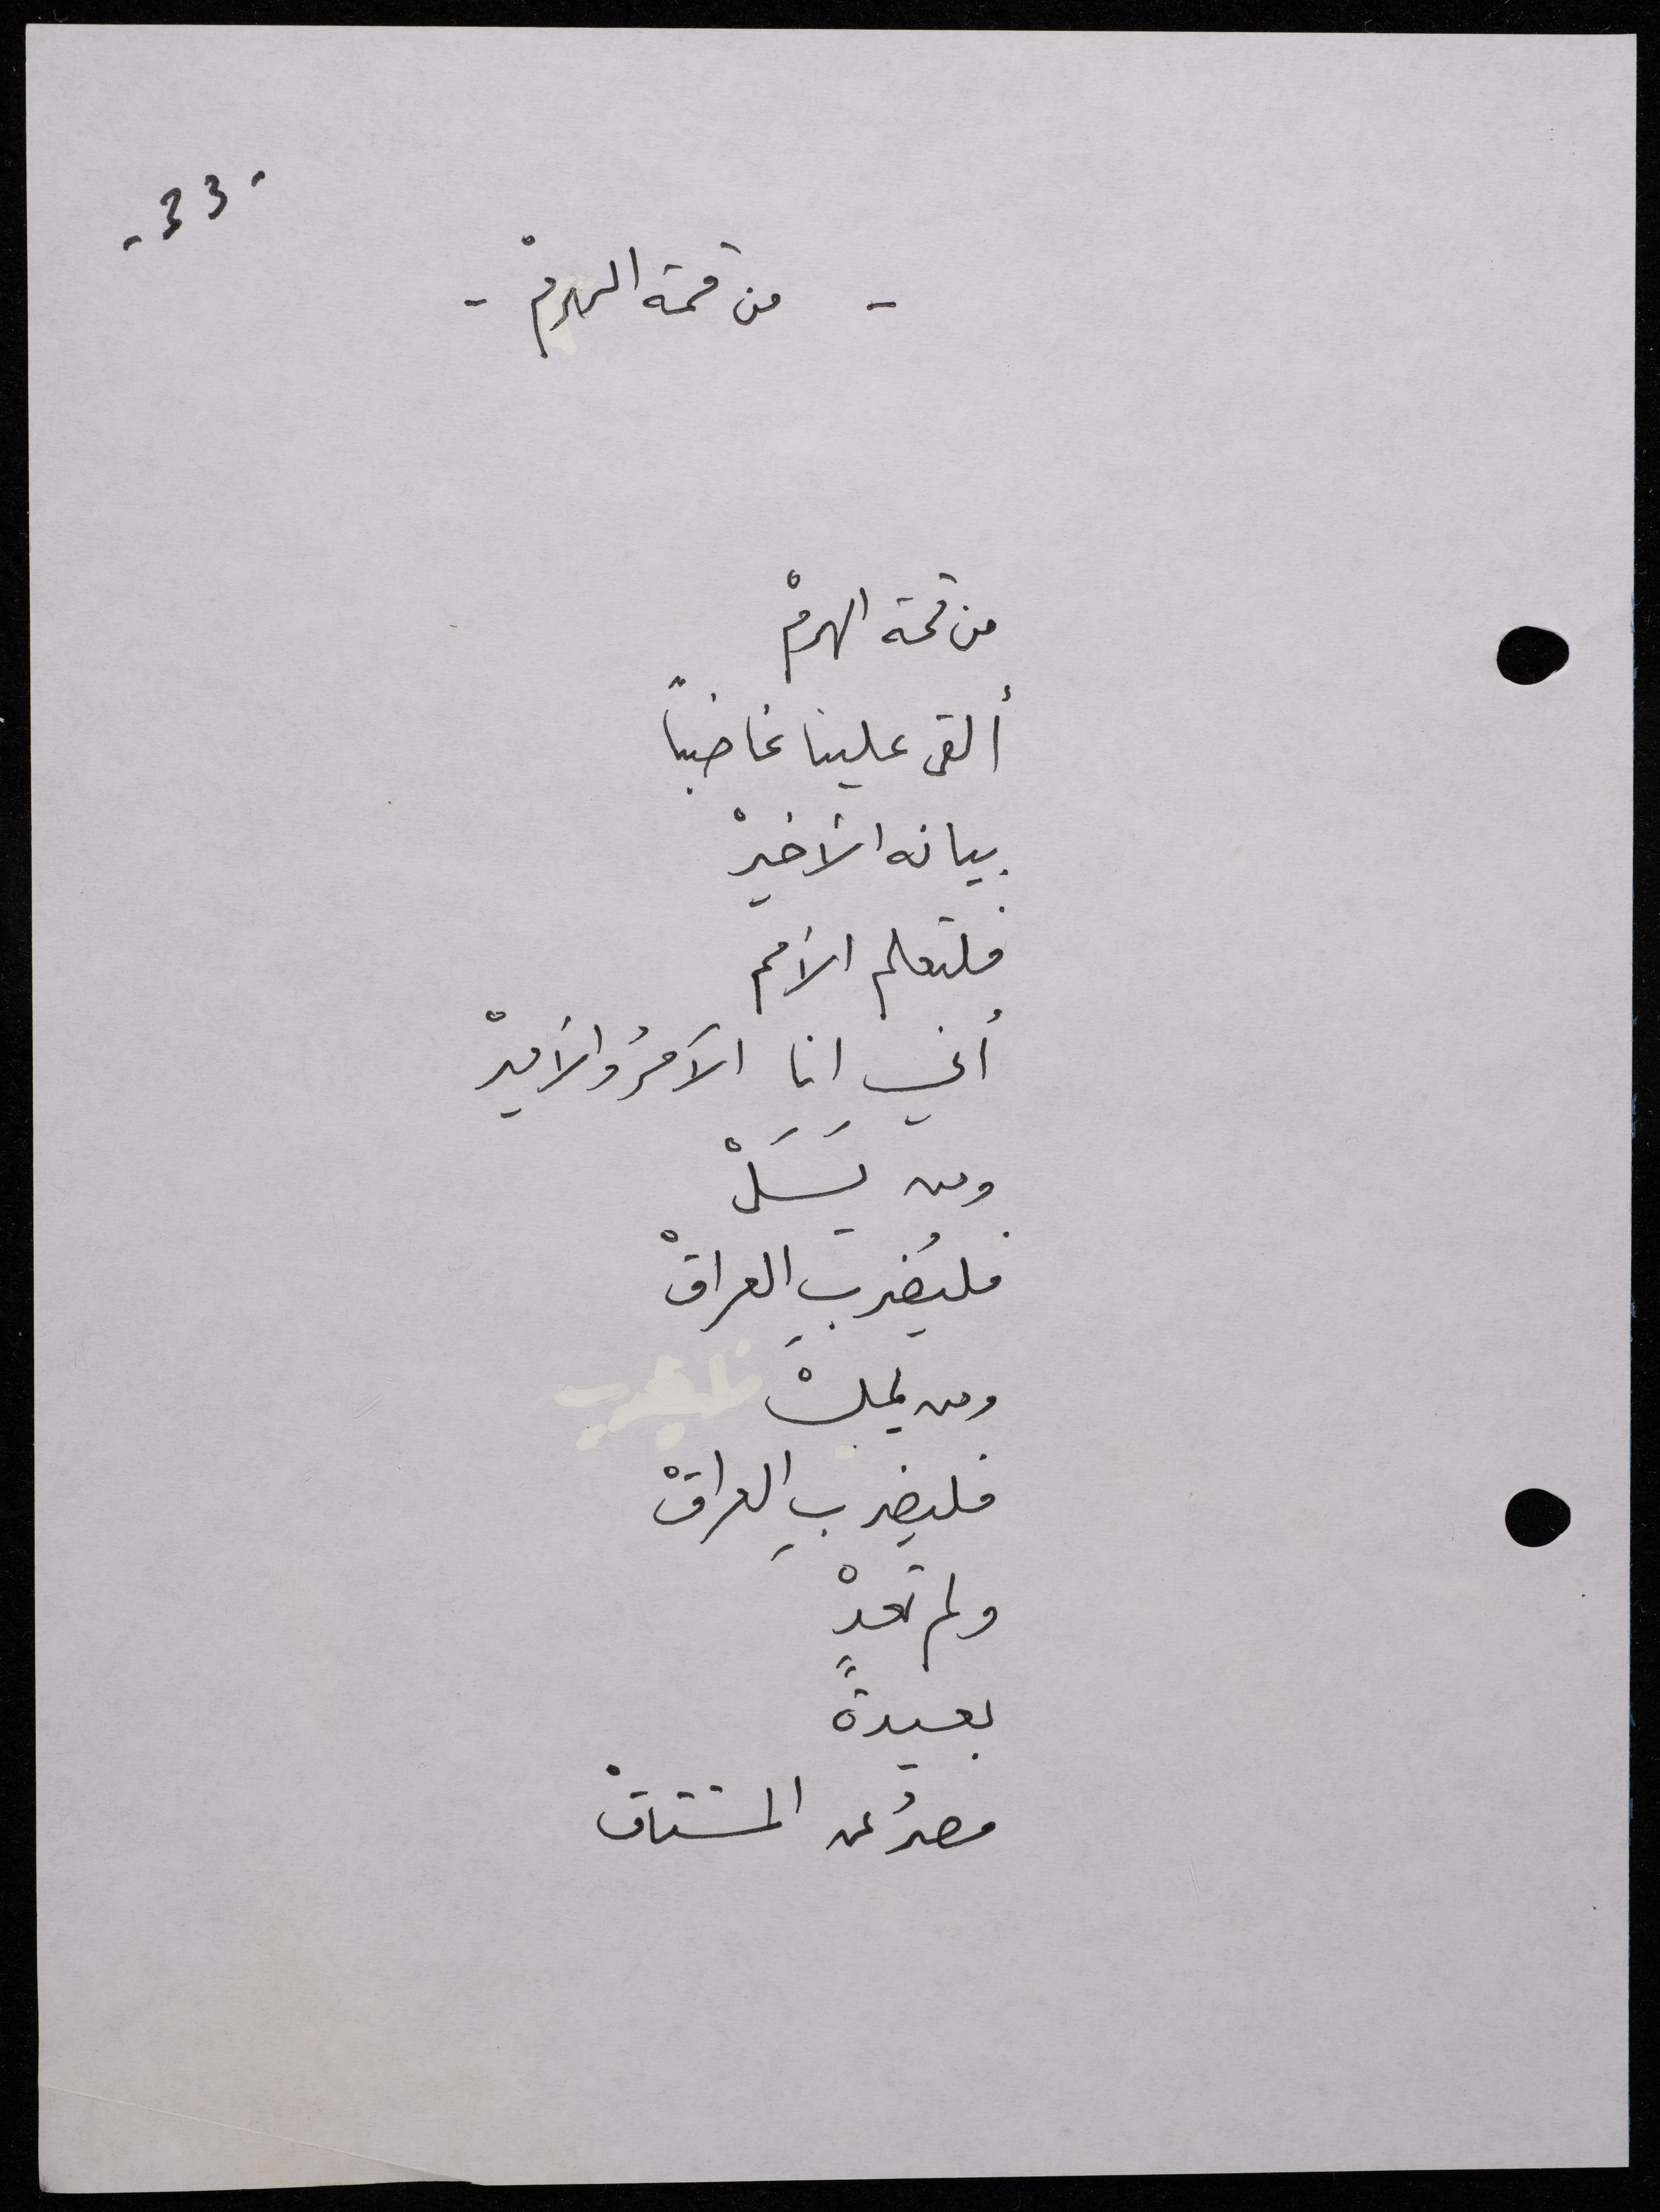 - 33 -
- من قمة الهرمْ -
من قمة الهرمْ
ألقى علينا غاضباً
بيانه الأخيرْ
فلتعلم الأمم
أني انا الآمرُ والأميرْ
ومن يَسَلْ
فليُضربِ العراقْ
ومن يملكْ
فليضربِ العراقْ
ولم تعدْ
بعيدةً
مصرُ عن المشتاقْ